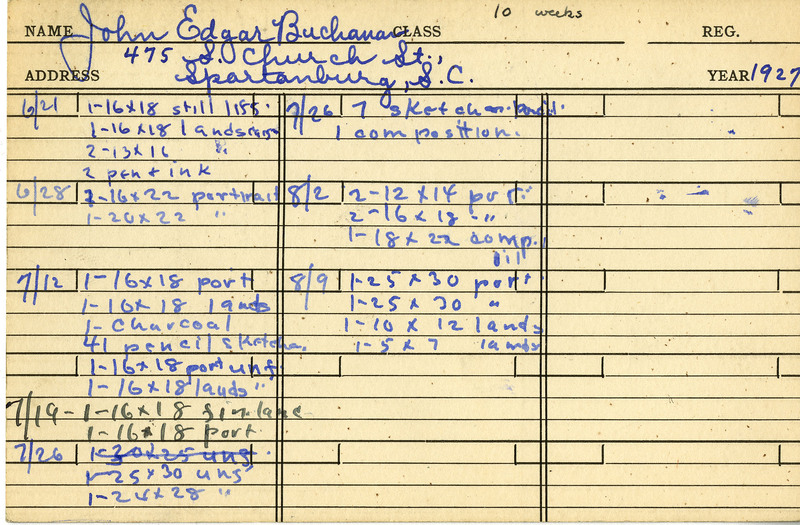 10 weeks
NAME John Edgar Buchanan CLASS REG.
475 S. Church St.,
ADDRESS Spartanburg, S.C. YEAR 1927
6/21 1-16x18 still life.
1-16x18 landscape
2-13x16 "
2 pen & ink
6/28 2-16x22 portrait
1-20x22 "
7/12 1-16x18 port
1-16x18 lands
1- charcoal
41 pencil sketches
1-16x18 port uns.
1-16x18 lands "
7/19 - 1-16x18 lands
1-16x18 port
7/26 1-30x25 uns.
1-25x30 uns
1-24x28 "
7/26 7 sketches
1 composition.
8/2 2-12x14 port.
2-16x18 - "
1-18x22 comp.
8/9 1-25x30 port
1-25x30 "
1-10x12 lands
1-5x7 lands